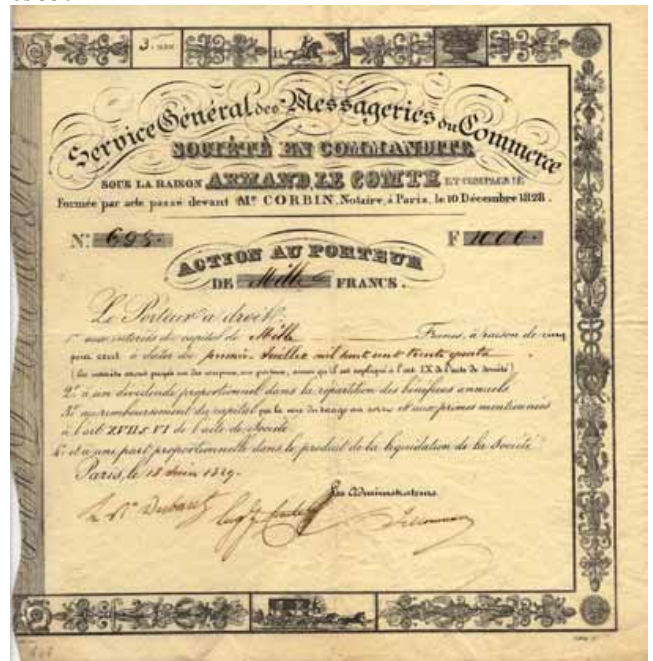 3.
Service Général des Messageries du Commerce
SOCIÉTÉ EN COMMANDITE
SOUS LA RAISON ARMAND, LE COMTE ET COMPAGNIE
Formée par acte passé devant Mᵉ CORBIN, Notaire, à Paris, le 10 Décembre 1828.
N° 695. F 1000.
ACTION AU PORTEUR
DE Mille FRANCS.
Le Porteur a droit:
1° aux intérêts du capital de Mille Francs, à raison de cinq
pour cent à dater du premier Juillet mil huit cent trente quatre
(les intérêts seront payés sur des coupons, au porteur, ainsi qu'il est expliqué à l'art. IX de l'acte de Société)
2° à un dividende proportionnel dans la répartition des bénéfices annuels
3° au remboursement du capital par la voie du tirage au sort et aux primes mentionnées
à l'art. XVII § VI de l'acte de Société
4° et à une part proportionnelle dans le produit de la liquidation de la Société
Paris, le 18 Juin 1829.
Les Administrateurs.